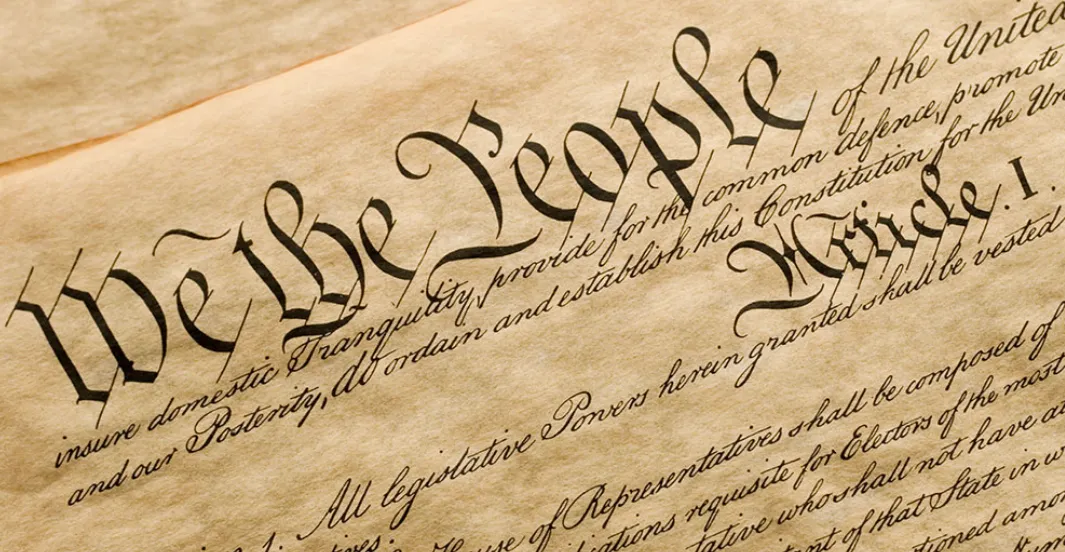 We the People of the United
insure domestic Tranquility, provide for the common defence, promote
and our Posterity, do ordain and establish this Constitution for the Un
Article. I.
All legislative Powers herein granted shall be vested
1.
of Representatives shall be composed of
requisite for Electors of the most
who shall not have at
of that State in w